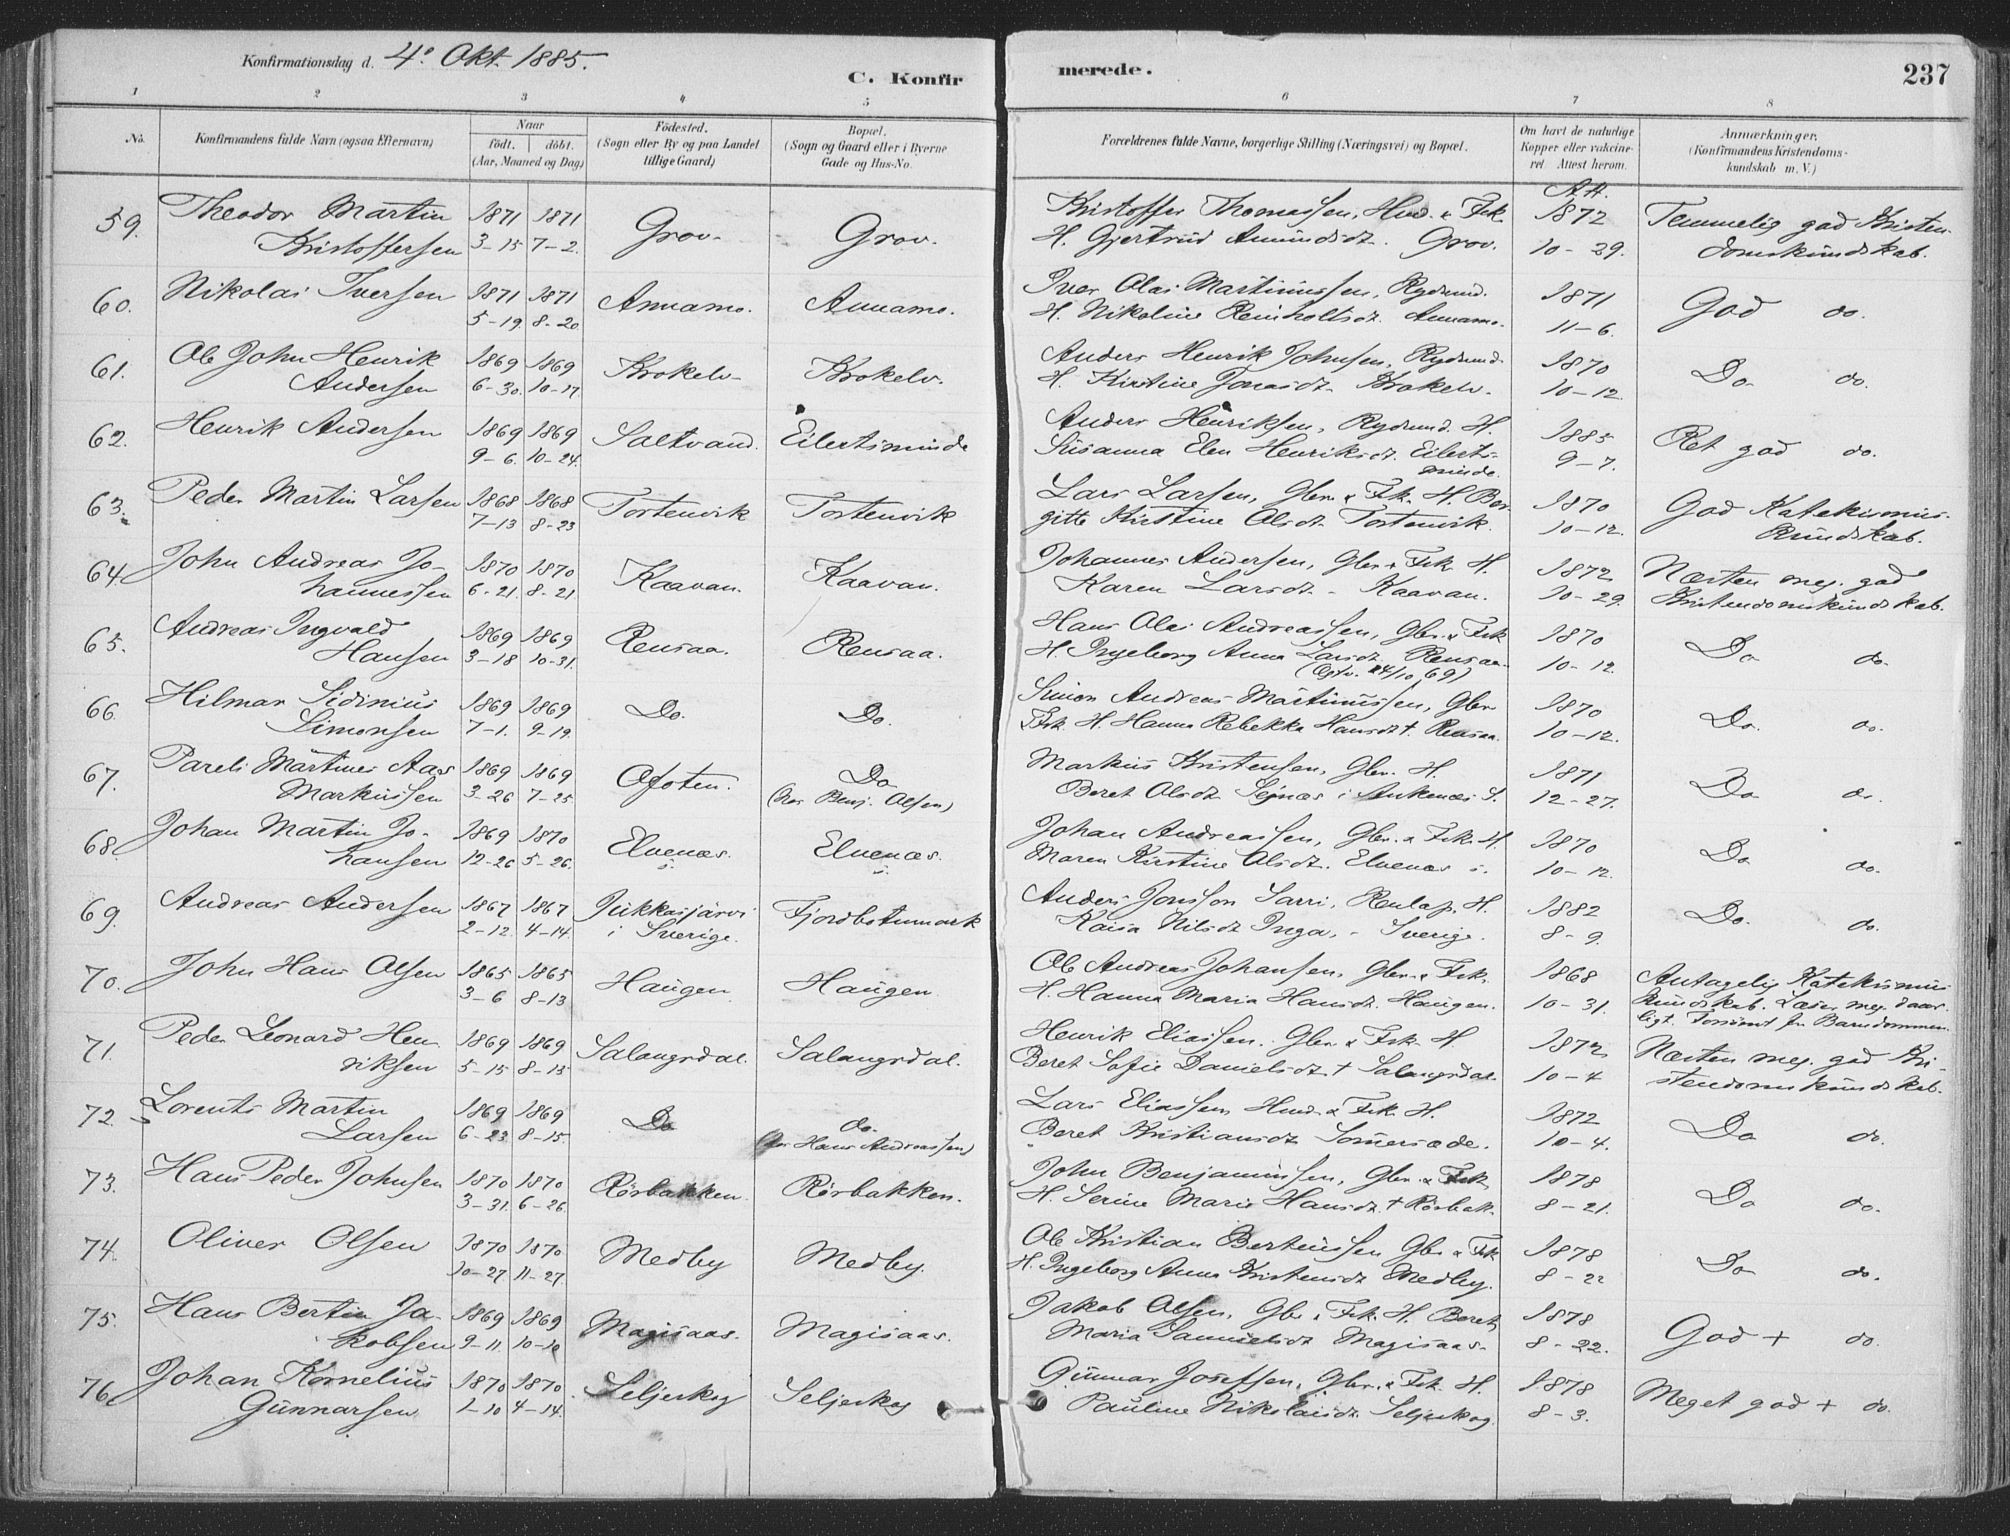 Konfirmationsdag d. 4de Okt. 1885.
C. Konfirmerede.
237
1 2 3 4 5 6 7 8
No. Konfirmandens fulde Navn (ogsaa Efternavn) Naar født. døbt. (Aar, Maaned og Dag) Fødested. (Sogn eller By og paa Landet tillige Gaard) Bopæl. (Sogn og Gaard eller i Byerne Gade og Hus-No. Forældrenes fulde Navne, borgerlige Stilling (Næringsvei) og Bopæl. Om havt de naturlige Kopper eller vakcineret. Attest herom. Anmærkninger. (Konfirmandens Kristendomskundskab m. V.)
59. Theodor Martin 1871 1871 Grov. Grov. Kristoffer Thomassen, Husm. & Fsk. 1872 Temmelig god Kristen-
Kristoffersen 3-15 7-2. H. Gjertrud Amundsdt. Grov. 10-29. domskundskab.
60. Nikolai Iversen 1871 1871 Annamo. Annamo. Iver Olai Martinussen, Rydsmd. 1871 God do.
5-19 8-20 H. Nikoline Reinholtsdt. Annamo. 11-6.
61. Ole John Henrik 1869 1869 Krokelv. Krokelv. Anders Henrik Johnsen, Rydsmd. 1870 Do do.
Andersen 6-30. 10-17. H. Kirstine Jonasdt. Krokelv. 10-12.
62. Henrik Andersen 1869 1869 Saltvand. Eilertsminde Anders Henriksen, Rydsmd. H. 1885 Ret god do.
9-6. 10-24. Susanna Elen Henriksdt. Eilerts- 9-7.
minde.
63. Peder Martin Larsen 1868 1868 Tortenvik Tortenvik Lars Larsen, Gbr. & Fsk. H. Ber- 1870 God Katekismus-
7-13 8-23 gitte Kirstine Olsdt. Tortenvik. 10-12. kundskab.
64. John Andreas Jo- 1870 1870 Kaavan. Kaavan. Johannes Andersen, Gbr. & Fsk. H. 1872 Næsten meg. god
hannessen 6-21. 8-21 Karen Larsdt. - Kaavan. 10-29. Kristendomskundskab.
65. Andreas Ingvald 1869 1869 Rensaa. Rensaa. Hans Olai Andreassen, Gbr. & Fsk 1870 Do do.
Hansen 3-18 10-31. H. Ingeborg Anna Larsdt. Rensaa. 10-12.
(Egtv. 24/10 69)
66. Hilmar Sidinius 1869 1869 Do. Do. Simon Andreas Martinussen, Gbr 1870 Do. do.
Simonsen 7-1. 9-19. Fsk. H. Hanna Rebekka Hansdt. † Rensaa. 10-12.
67. Pareli Martines Aas 1869 1869 Ofoten. Do Markus Kristensen, Gbr. H. 1871 Do do.
Markussen 3-26 7-25 (hos Benj. Olsen) Beret Olsdt. i Ankenæs S. 12-27.
68. Johan Martin Jo- 1869 1870 Elvenæs. Elvenæs. Johan Andreassen, Gbr. & Fsk. H. 1870 Do do.
hansen 12-26 5-26. i. i. Maren Kirstine Olsdt. Elvenæs i. 10-12.
69. Andreas Andersen 1867 1867 Jukkasjärvi Fjordbotnmark Anders Jonsson Sarri, Renlap. H. 1882 Do. do.
2-12. 4-14. i Sverige. Kaisa Nilsdt Inga, - Sverige. 8-9.
70. John Hans Olsen 1865 1865 Haugen Haugen. Ole Andreas Johansen, Gbr. & Fsk. 1868 Antagelig Katekismus
3-6 8-13 H. Hanna Maria Hansdt. Haugen. 10-31. kundskab. Læser meg. daar-
ligt. Forsømt fra Barndommen
71. Peder Leonard Hen 1869 1869 Salangsdal. Salangsdal. Henrik Eliassen. Gbr. & Fsk. H. 1872 Næsten meg. god Kri-
riksen 5-15 8-15 Beret Sofie Danielsdt. † Salangsdal. 10-4 stendomskundskab.
72. Lorents Martin 1869 1869 Do do. Lars Eliassen Husm. & Fsk. H. 1872 Do do.
Larsen 6-23 8-15. (hos Hans Andreassen) Beret Kristiansdt. Somersæde. 10-4.
73. Hans Peder Johnsen 1870 1870 Rørbakken. Rørbakken. John Benjaminsen, Gbr. & Fsk. 1878 Do do.
3-31. 6-26. H. Serine Marie Hansdt. † Rørbak. 8-21.
74. Oliver Olsen 1870 1870 Medby Medby. Ole Kristian Berteussen Gbr & Fsk 1878 Do do.
10-27 11-27. H. Ingeborg Anna Kristensdt. Medby. 8-22
75. Hans Bertin Ja- 1869 1869 Magisaas. Magisaas. Jakob Olsen, Gbr & Fsk. H. Beret 1878 God + do.
kobsen 9-11 10-10 Maria Samuelsdt Magisaas. 8-22.
76. Johan Kornelius 1870 1870 Seljeskog Seljeskog Gunnar Josefsen, Gbr. & Fsk. H. 1878 Meget god + do.
Gunnarsen 1-10 4-14. Pauline Nikolaisdt. Seljeskog. 8-3.